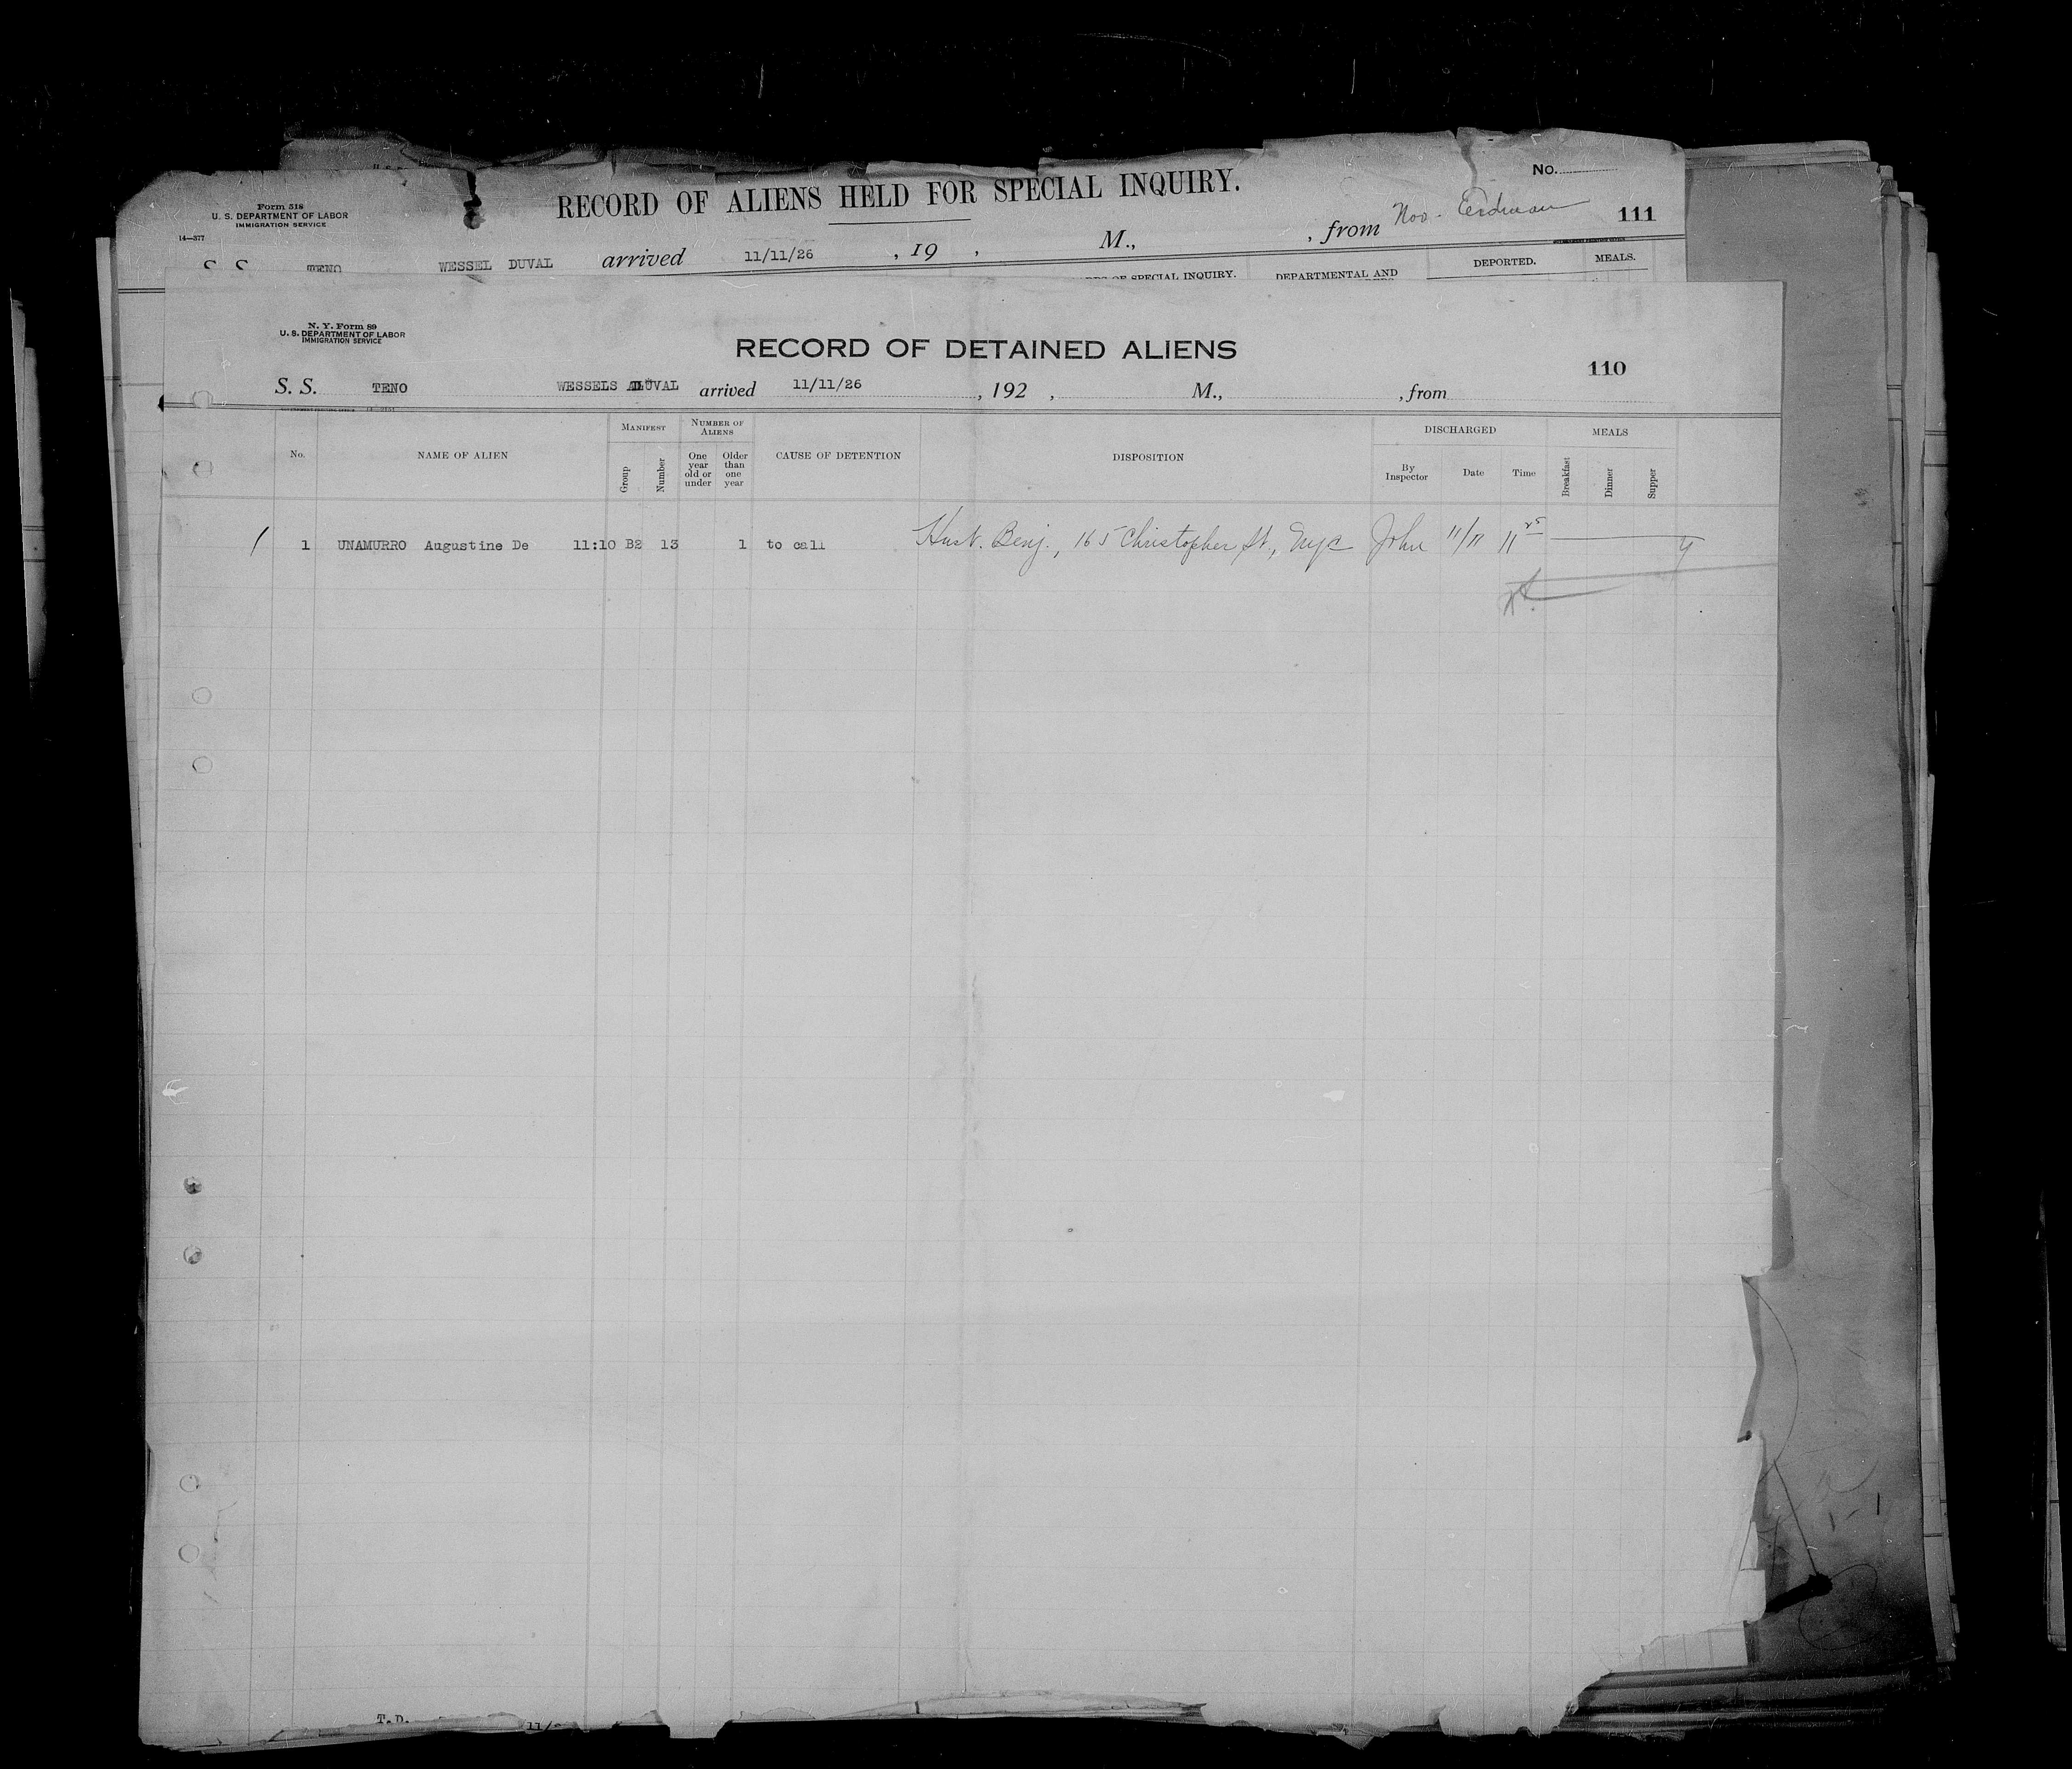 No.
RECORD OF ALIENS HELD FOR SPECIAL INQUIRY.
Form 518
U. S. DEPARTMENT OF LABOR
IMMIGRATION SERVICE
14—377
111
S. S. TENO WESSEL DUVAL arrived 11/11/26 , 19 , M., , from Nov. Erdman
DEPORTED. MEALS.
SPECIAL INQUIRY. DEPARTMENTAL AND
N. Y. Form 89
U. S. DEPARTMENT OF LABOR
IMMIGRATION SERVICE
RECORD OF DETAINED ALIENS
110
S. S. TENO WESSELS DUVAL arrived 11/11/26 , 192 , M., , from
No. NAME OF ALIEN MANIFEST Group Number NUMBER OF ALIENS One year old or under Older than one year CAUSE OF DETENTION DISPOSITION DISCHARGED By Inspector Date Time MEALS Breakfast Dinner Supper
/ 1 UNAMURRO Augustine De 11:10 B2 13 1 to call Husb. Benj., 165 Christopher St., Nyc John 11/11 11 25
T.D. 11/